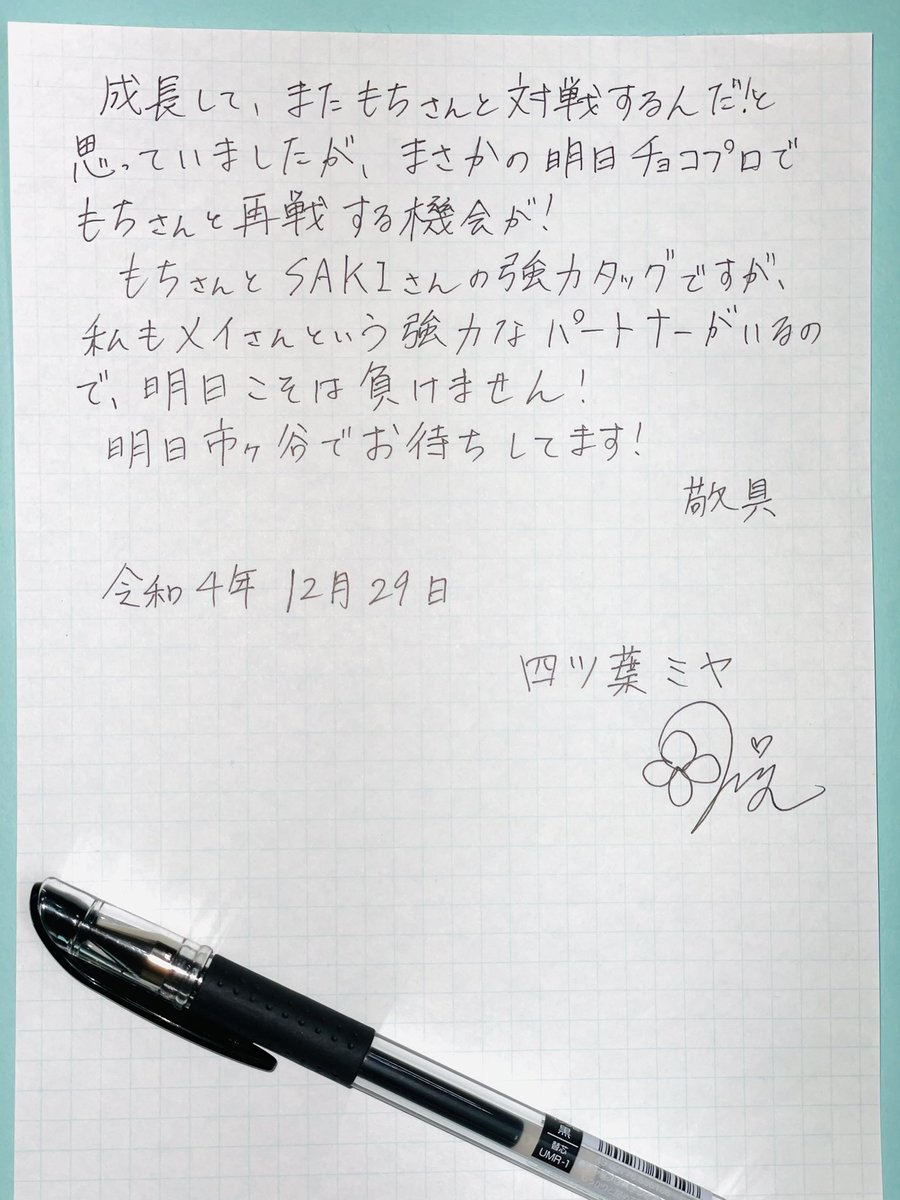 成長して、またもちさんと対戦するんだ!と
思っていましたが、まさかの明日チョコプロで
もちさんと再戦する機会が!
もちさんとSAKIさんの強力タッグですが、
私もメイさんという強力なパートナーがいるの
で、明日こそは負けません!
明日市ヶ谷でお待ちしてます!
敬具
令和4年 12月29日
四ツ葉ミヤ
黒
替芯
UMR-1